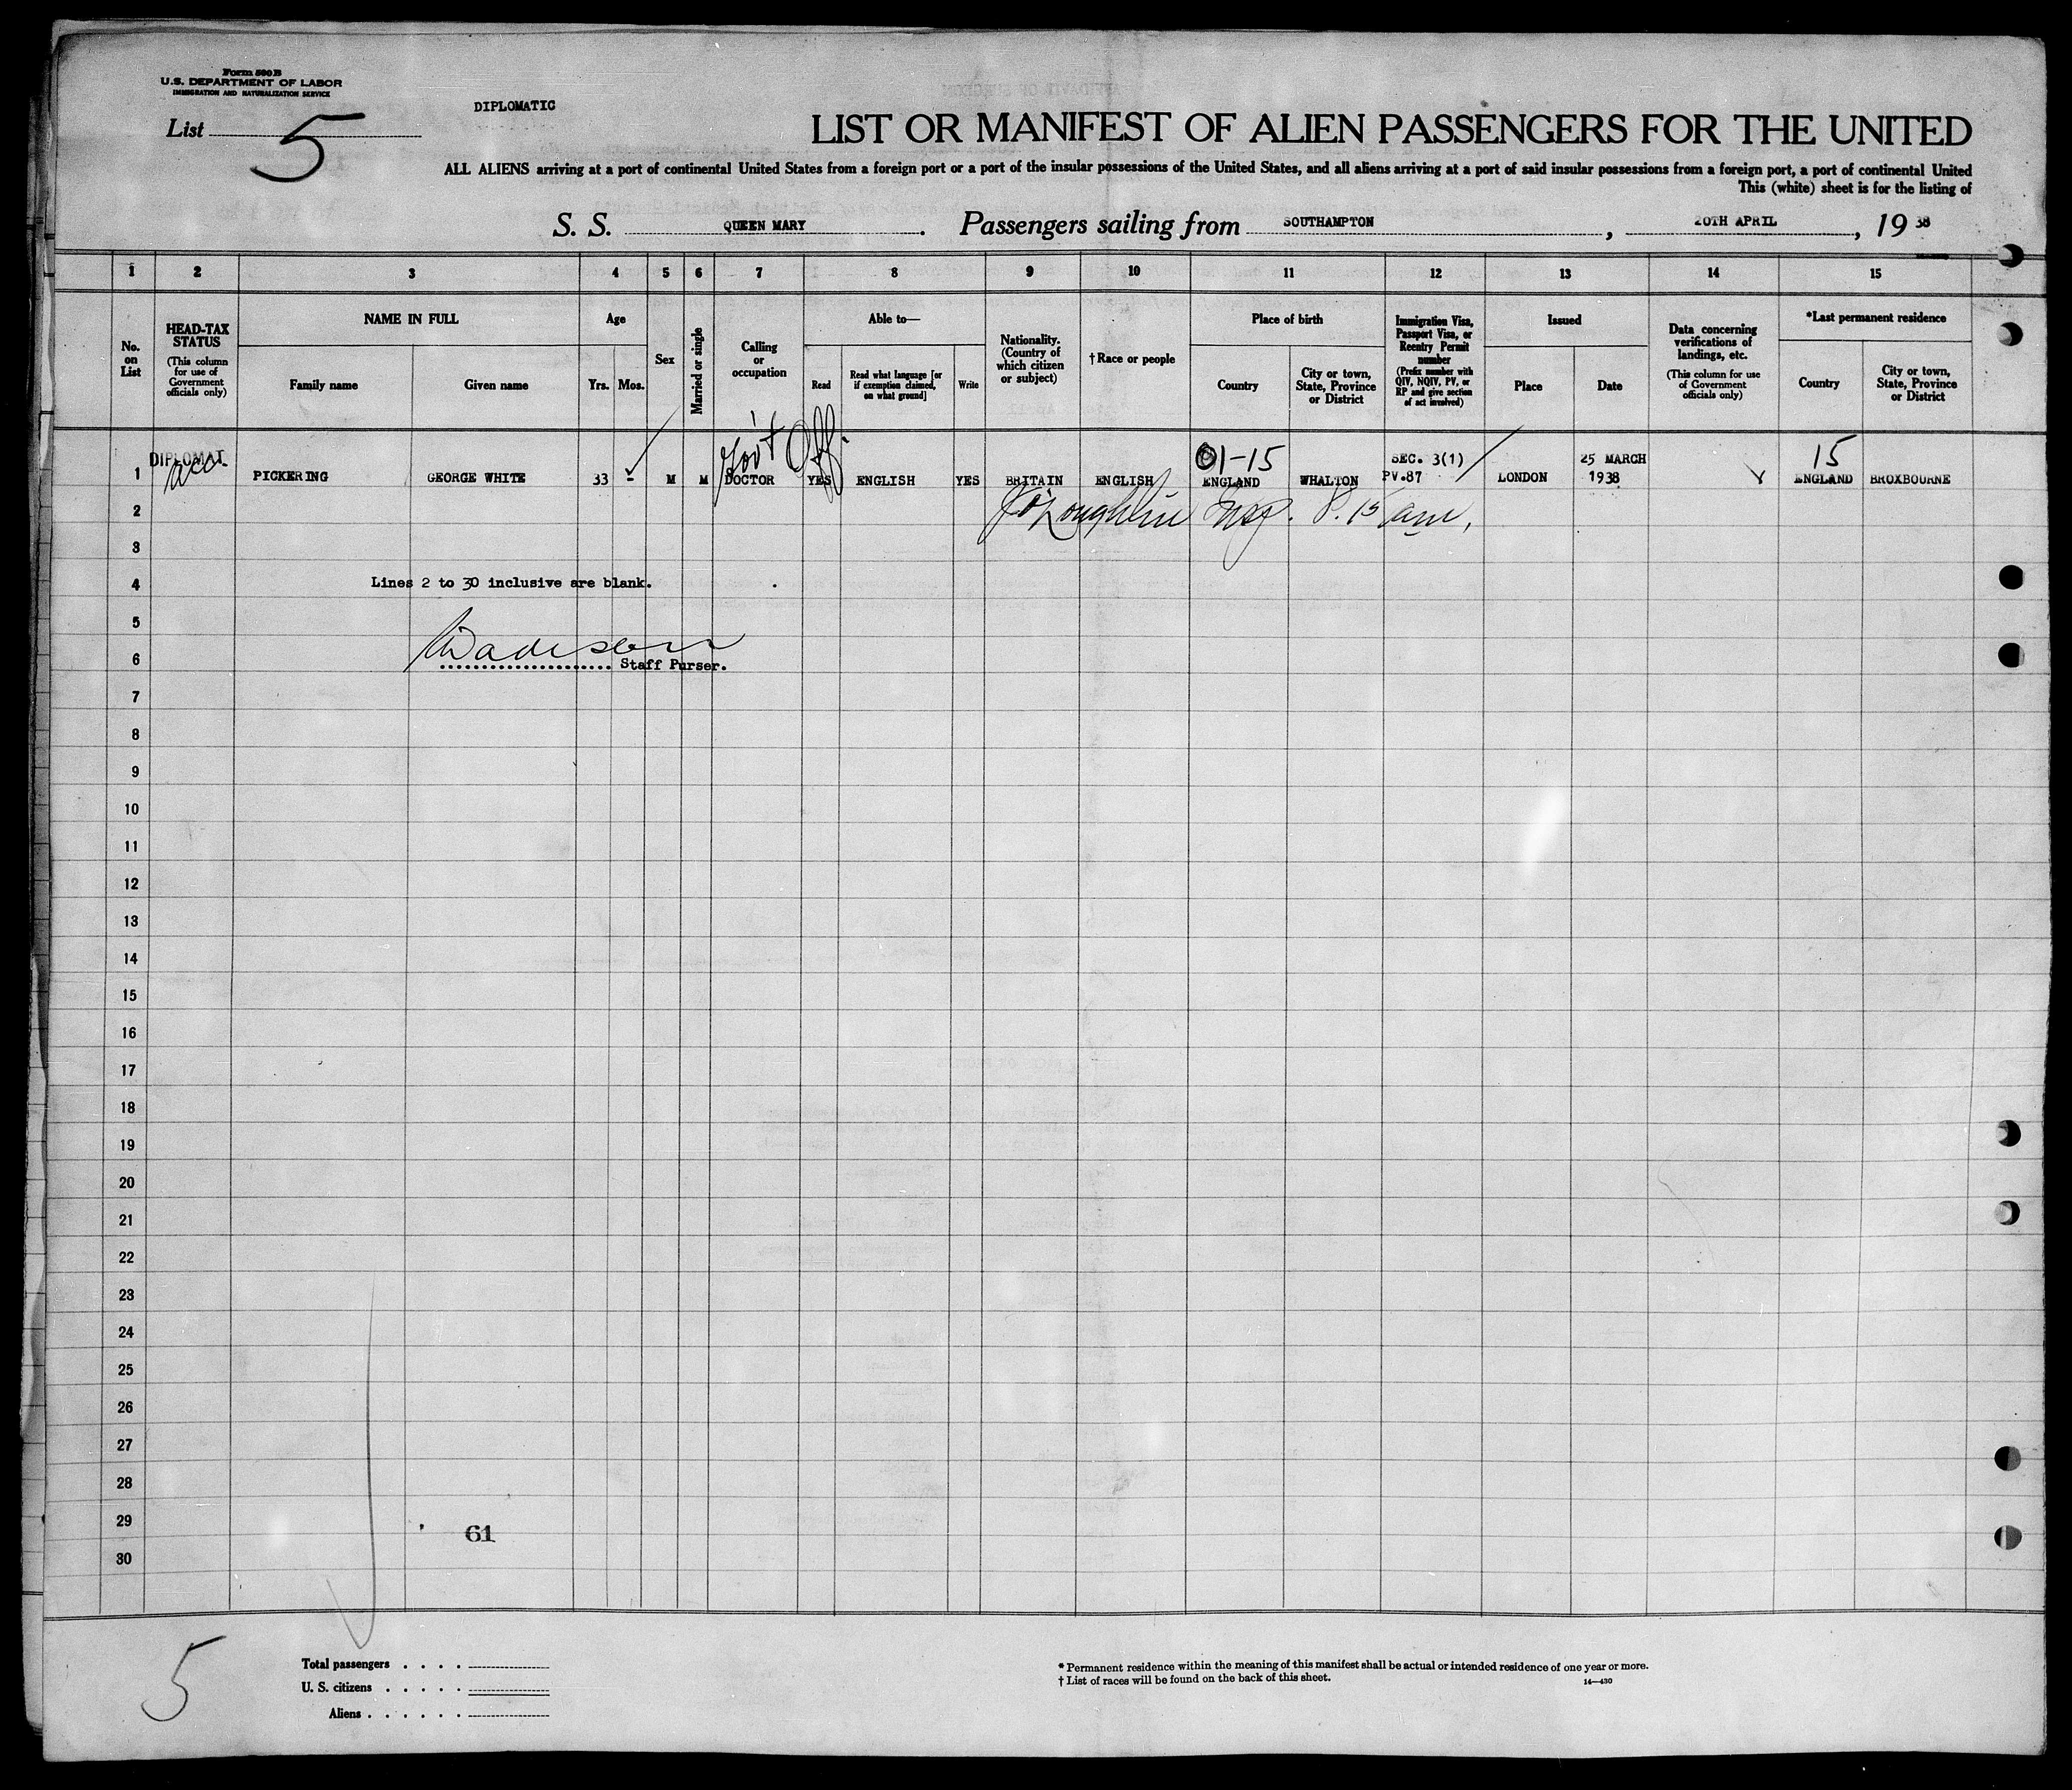 Form 500B
U.S. DEPARTMENT OF LABOR
IMMIGRATION AND NATURALIZATION SERVICE
DIPLOMATIC
List 5
LIST OR MANIFEST OF ALIEN PASSENGERS FOR THE UNITED
ALL ALIENS arriving at a port of continental United States from a foreign port or a port of the insular possessions of the United States, and all aliens arriving at a port of said insular possessions from a foreign port, a port of continental United
This (white) sheet is for the listing of
S. S. QUEEN MARY. Passengers sailing from SOUTHAMPTON, 20TH APRIL, 19 38
1 2 3 4 5 6 7 8 9 10 11 12 13 14 15
No. on List
HEAD-TAX STATUS
(This column for use of Government officials only)
NAME IN FULL
Family name
Given name
Age
Yrs. Mos.
Sex
Married or single
Calling or occupation
Able to—
Read
Read what language [or if exemption claimed, on what ground]
Write
Nationality. (Country of which citizen or subject)
†Race or people
Place of birth
Country
City or town, State, Province or District
Immigration Visa, Passport Visa, or Reentry Permit number
(Prefix number with QIV, NQIV, PV, or RP and give section of act involved)
Issued
Place
Date
Data concerning verifications of landings, etc.
(This column for use of Government officials only)
*Last permanent residence
Country
City or town, State, Province or District
Gov't Off.
DIPLOMAT 01-15 SEC. 3(1) 25 MARCH 15
1 PICKERING GEORGE WHITE 33 M M DOCTOR YES ENGLISH YES BRITAIN ENGLISH ENGLAND WHALTON PV.87 LONDON 1938 ENGLAND BROXBOURNE
2 O'Loughlin Insp.
3
4 Lines 2 to 30 inclusive are blank.
5
6 Staff Purser.
7
8
9
10
11
12
13
14
15
16
17
18
19
20
21
22
23
24
25
26
27
28
29 61
30
5
Total passengers . . . .
U. S. citizens . . . . .
Aliens . . . . . .
* Permanent residence within the meaning of this manifest shall be actual or intended residence of one year or more.
† List of races will be found on the back of this sheet.
14—430